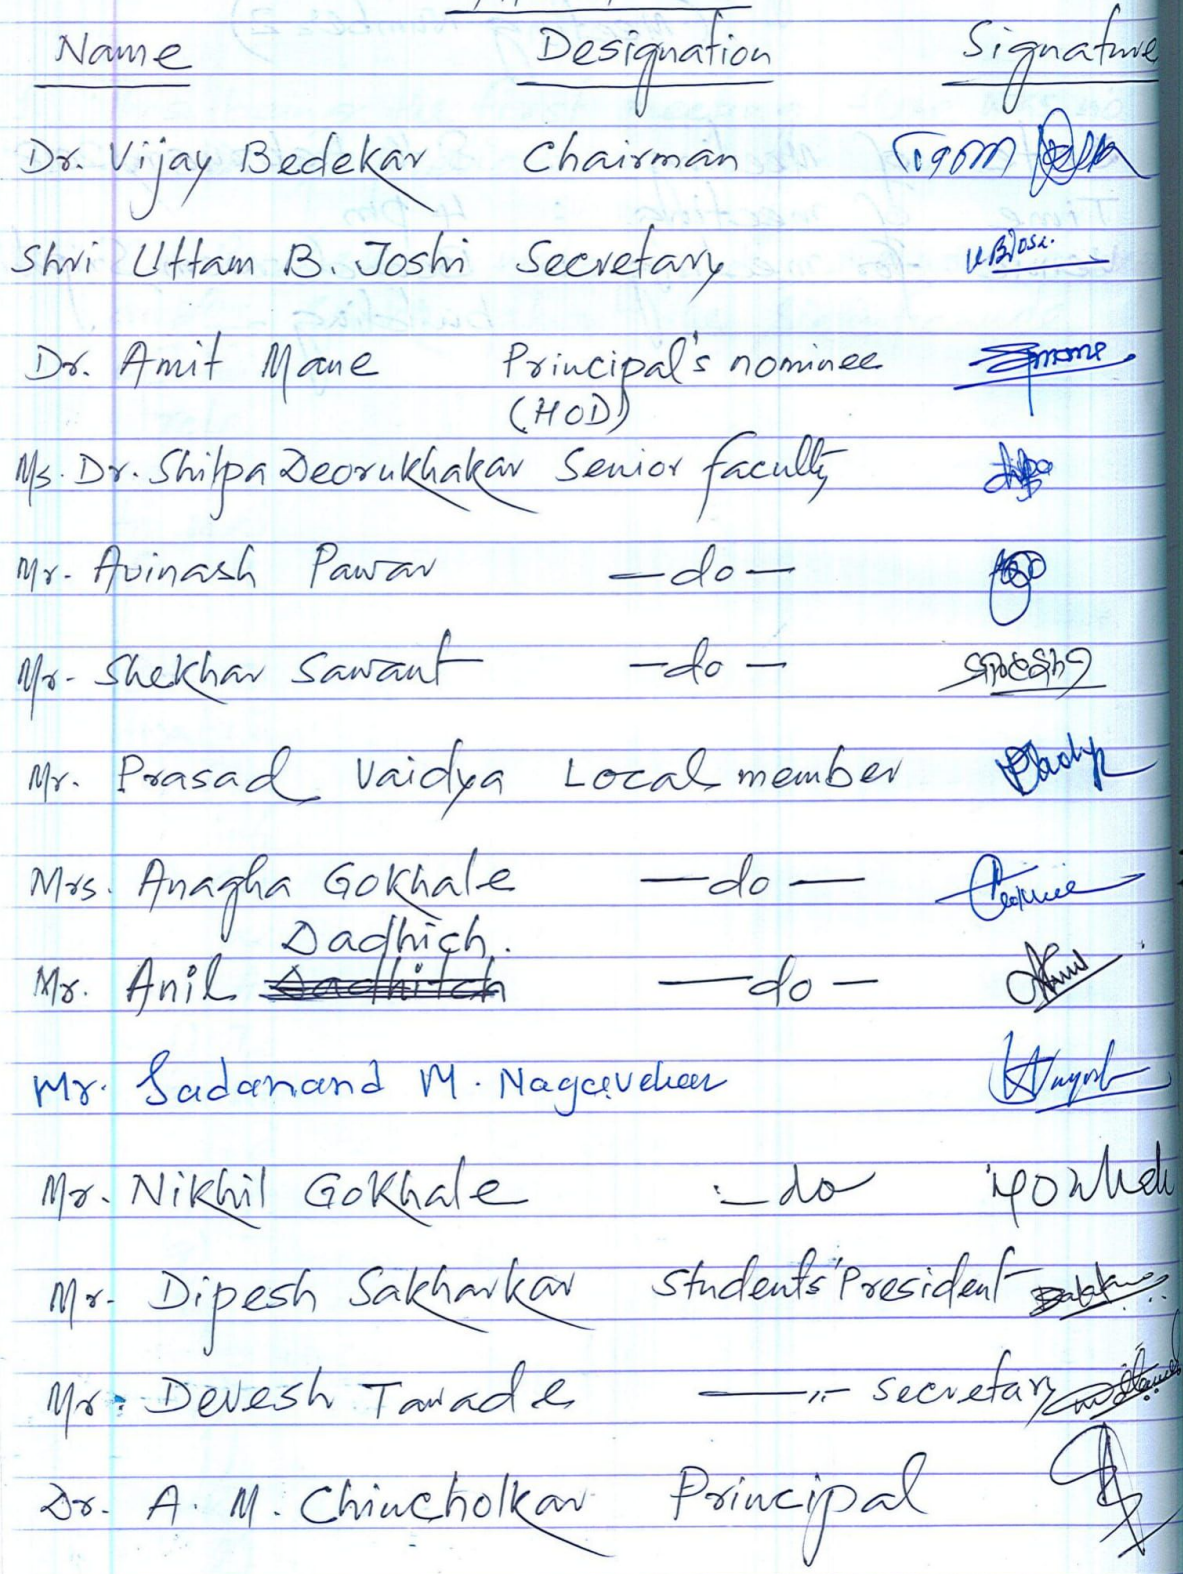 Name Designation Signature
Dr. Vijay Bedekar Chairman
Shri Uttam B. Joshi Secretary
Dr. Amit Mane Principal's nominee
(HOD)
Ms. Dr. Shilpa Deorukhakar Senior faculty
Mr. Avinash Pawar —do—
Mr. Shekhar Sawant —do—
Mr. Prasad Vaidya Local member
Mrs. Anagha Gokhale —do—
Dadhich.
Mr. Anil Dadhitch —do—
Mr. Sadanand M. Nagavekar
Mr. Nikhil Gokhale :—do
Mr. Dipesh Sakharkar Students' President
Mr. Devesh Tawade —"— secretary
Dr. A. M. Chincholkar Principal